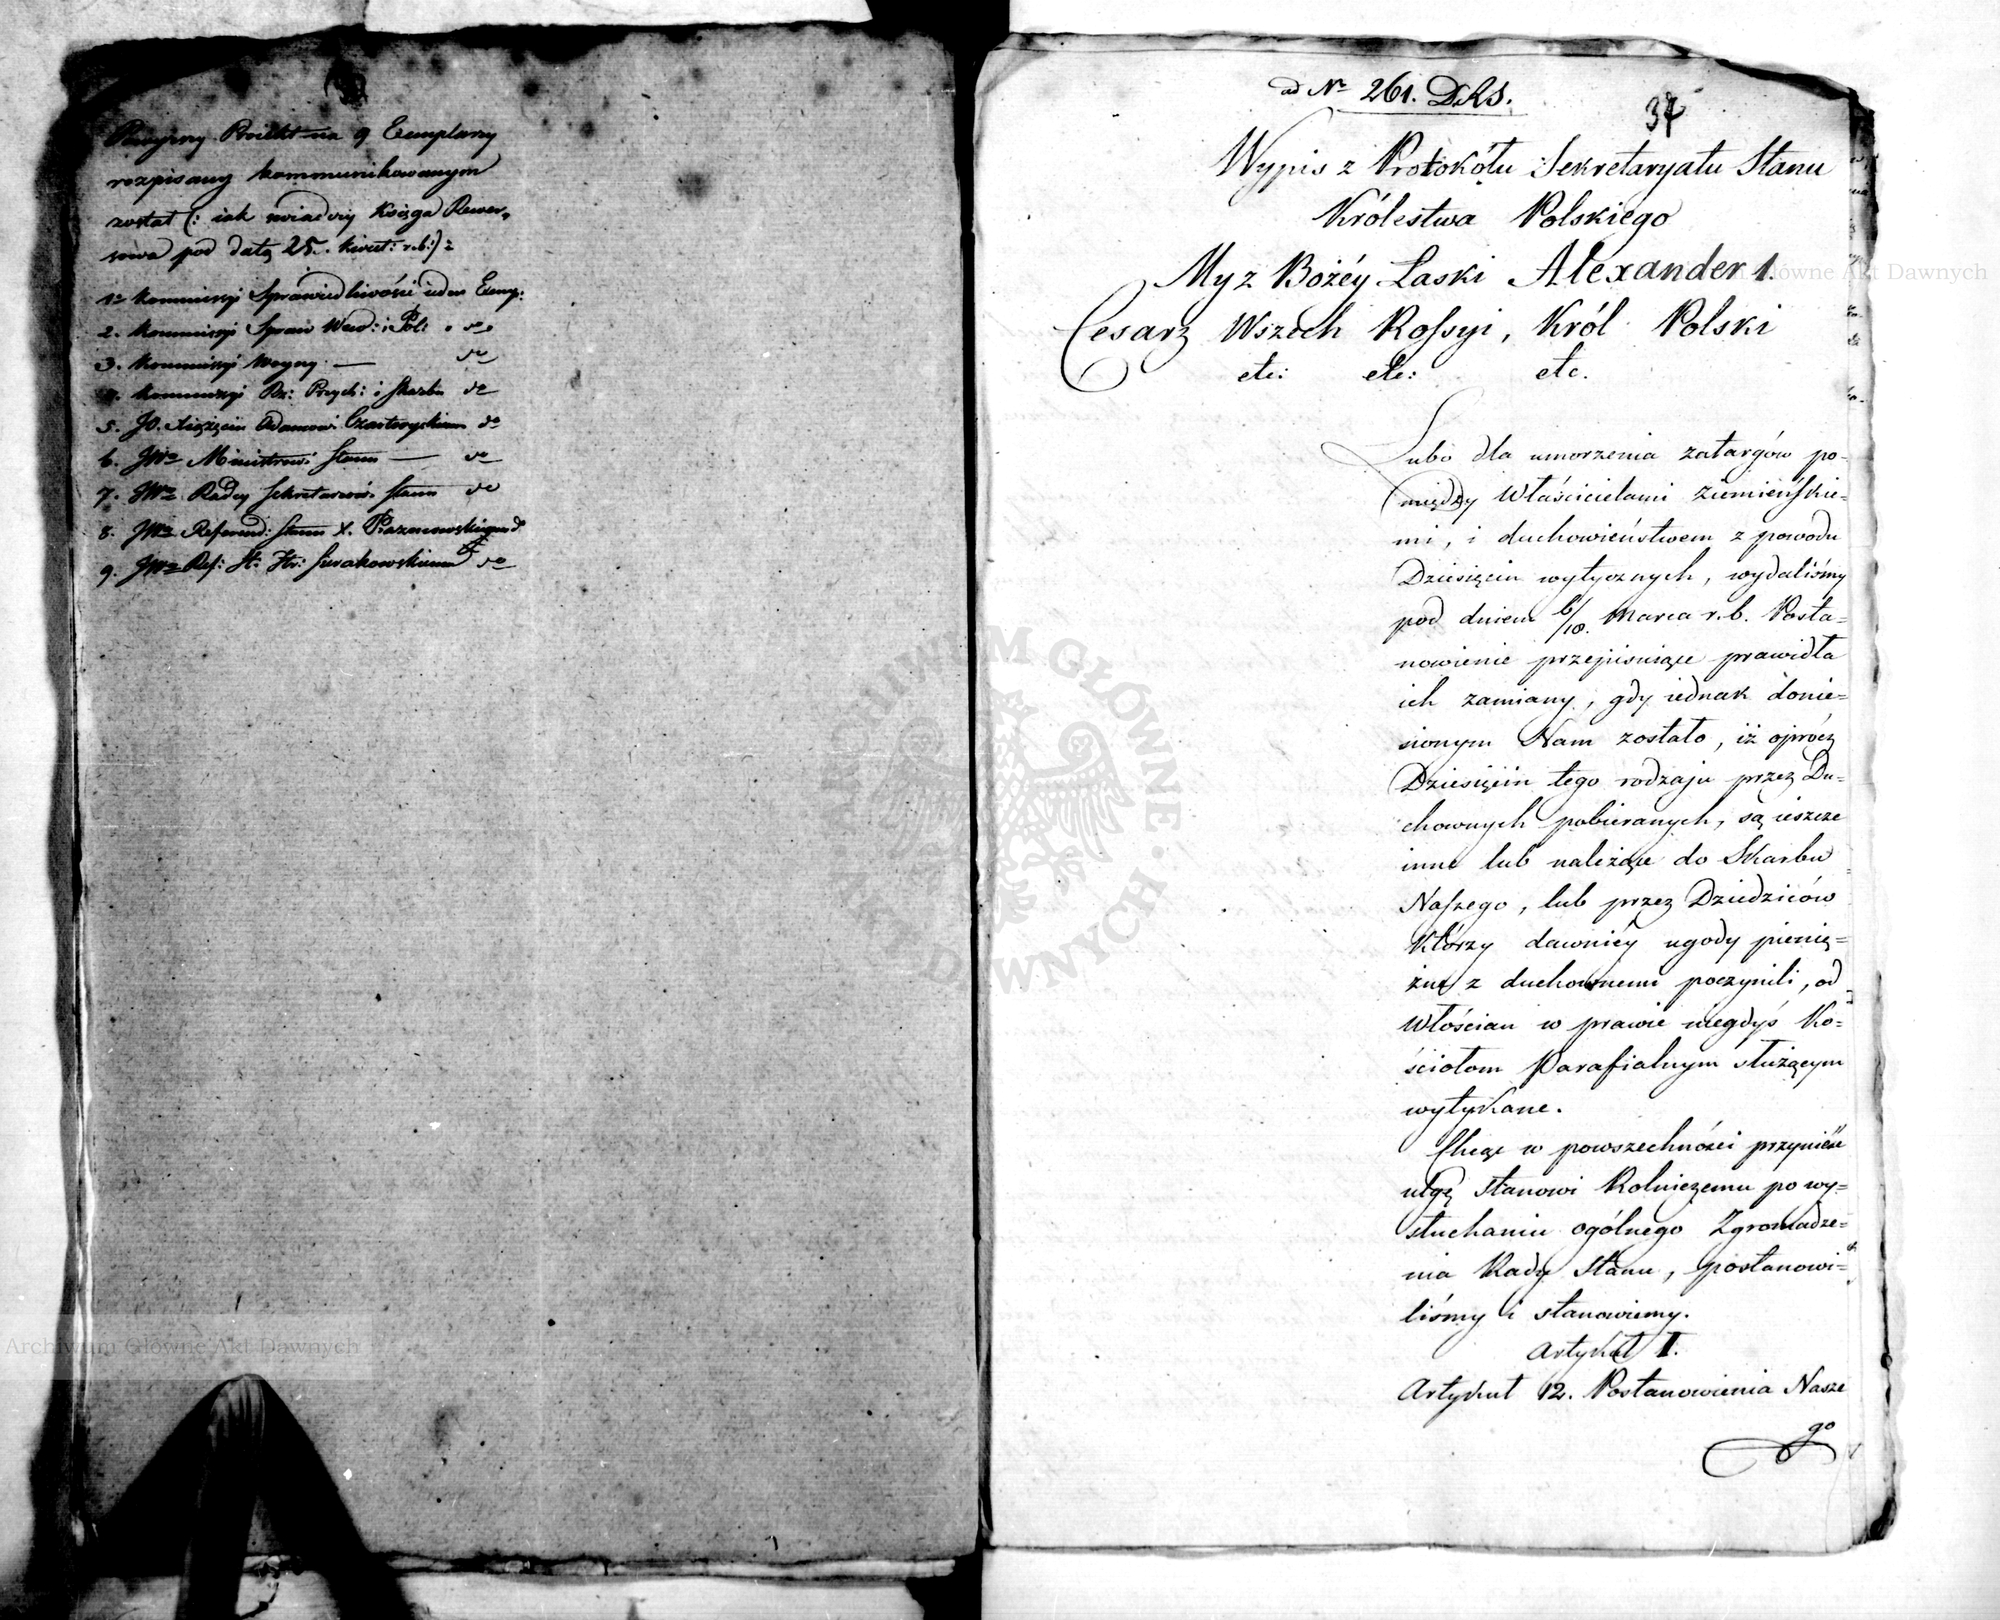 Powyższy Proiekt na 9 Exemplarzy
rozpisany kommunikowanym
został (: iak świadczy Księga Rewer-
sowa pod datą 25. kwiet: r.b:) :
1o Kommissyi Sprawiedliwości ieden Exemp:
2. Kommissyi Spraw Wew: i Pol: do
3. Kommissyi Woyny — do
4. Kommissyi Rz: Przych: i Skarbu do
5. JO. Xiążęciu Adamowi Czartoryskiemu do
6. JWu Ministrowi Stanu — do
7. JWu Radcy Sekretarzowi Stanu do
8. JWu Referend: Stanu X. Prazmowskiemu do
9. JWu Ref: St: Hr: Sierakowskiemu do
ad No 261. DRS.
37
Wypis z Protokółu Sekretaryatu Stanu
Królestwa Polskiego
My z Bożéy Łaski Alexander 1.
Cesarz Wszech Rossyi, Król Polski
etc: etc: etc.
Lubo dla umorzenia zatargów po-
między Właścicielami ziemieńskie-
mi, i duchowieństwem z powodu
Dziesięcin wytycznych, wydaliśmy
pod dniem 6/18. Marca r.b. Posta-
nowienie przepisuiące prawidła
ich zamiany, gdy iednak donie-
sionym Nam zostało, iż oprócz
Dziesięcin tego rodzaju przez Du-
chownych pobieranych, są ieszcze
inne lub należące do Skarbu
Naszego, lub przez Dziedziców
którzy dawniéy ugody pienię-
żne z duchownemi poczynili, od
Włościan w prawie niegdyś Ko-
ściołom Parafialnym służącym
wytykane.
Chcąc w powszechności przynieść
ulgę Stanowi Rolniczemu po wy-
słuchaniu ogólnego Zgromadze-
nia Rady Stanu, postanowi-
liśmy i stanowiemy.
Artykuł I.
Artykuł 12. Postanowienia Nasze
go
Archiwum Główne Akt Dawnych
Główne Akt Dawnych
ARCHIWUM GŁÓWNE AKT DAWNYCH